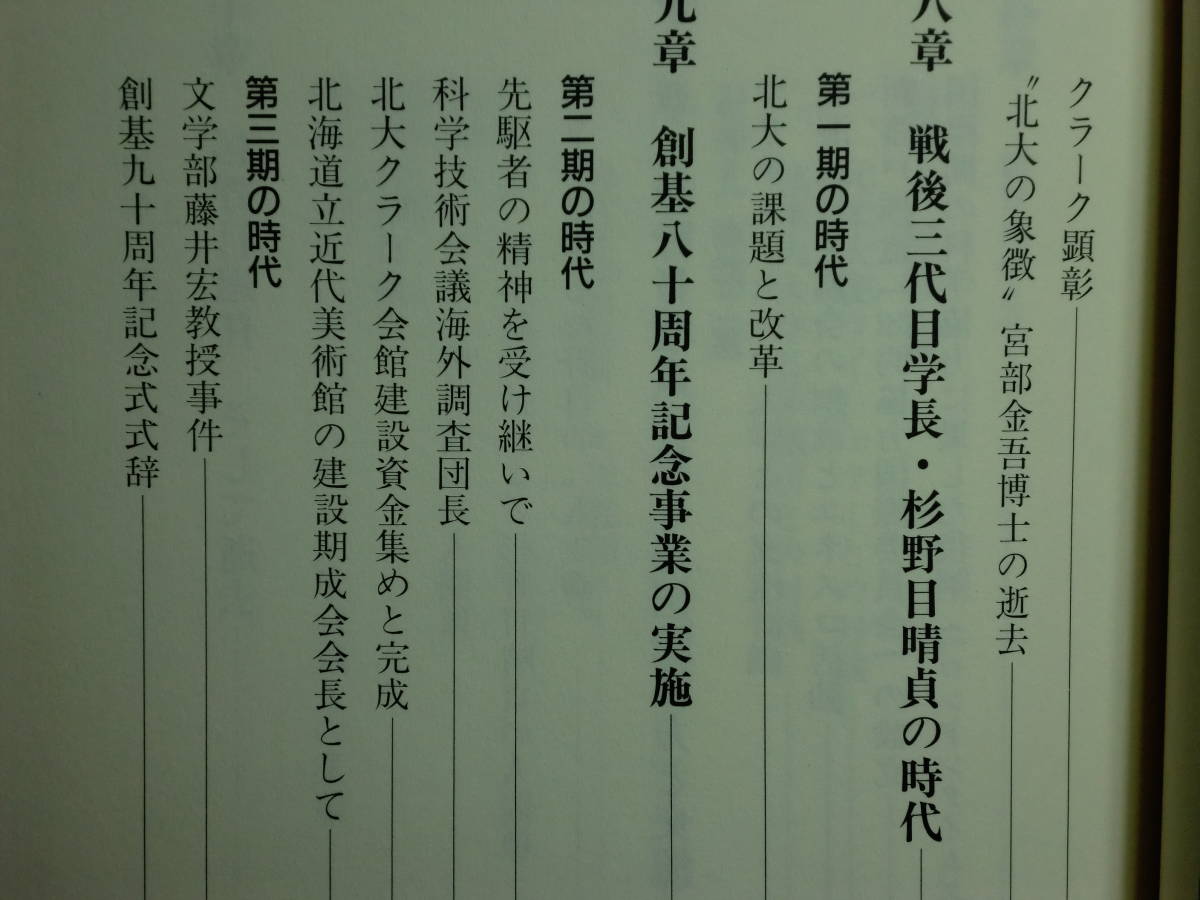 クラーク顕彰
〝北大の象徴〟宮部金吾博士の逝去
八章　戦後三代目学長・杉野目晴貞の時代
第一期の時代
北大の課題と改革
九章　創基八十周年記念事業の実施
第二期の時代
先駆者の精神を受け継いで
科学技術会議海外調査団長
北大クラーク会館建設資金集めと完成
北海道立近代美術館の建設期成会会長として
第三期の時代
文学部藤井宏教授事件
創基九十周年記念式式辞